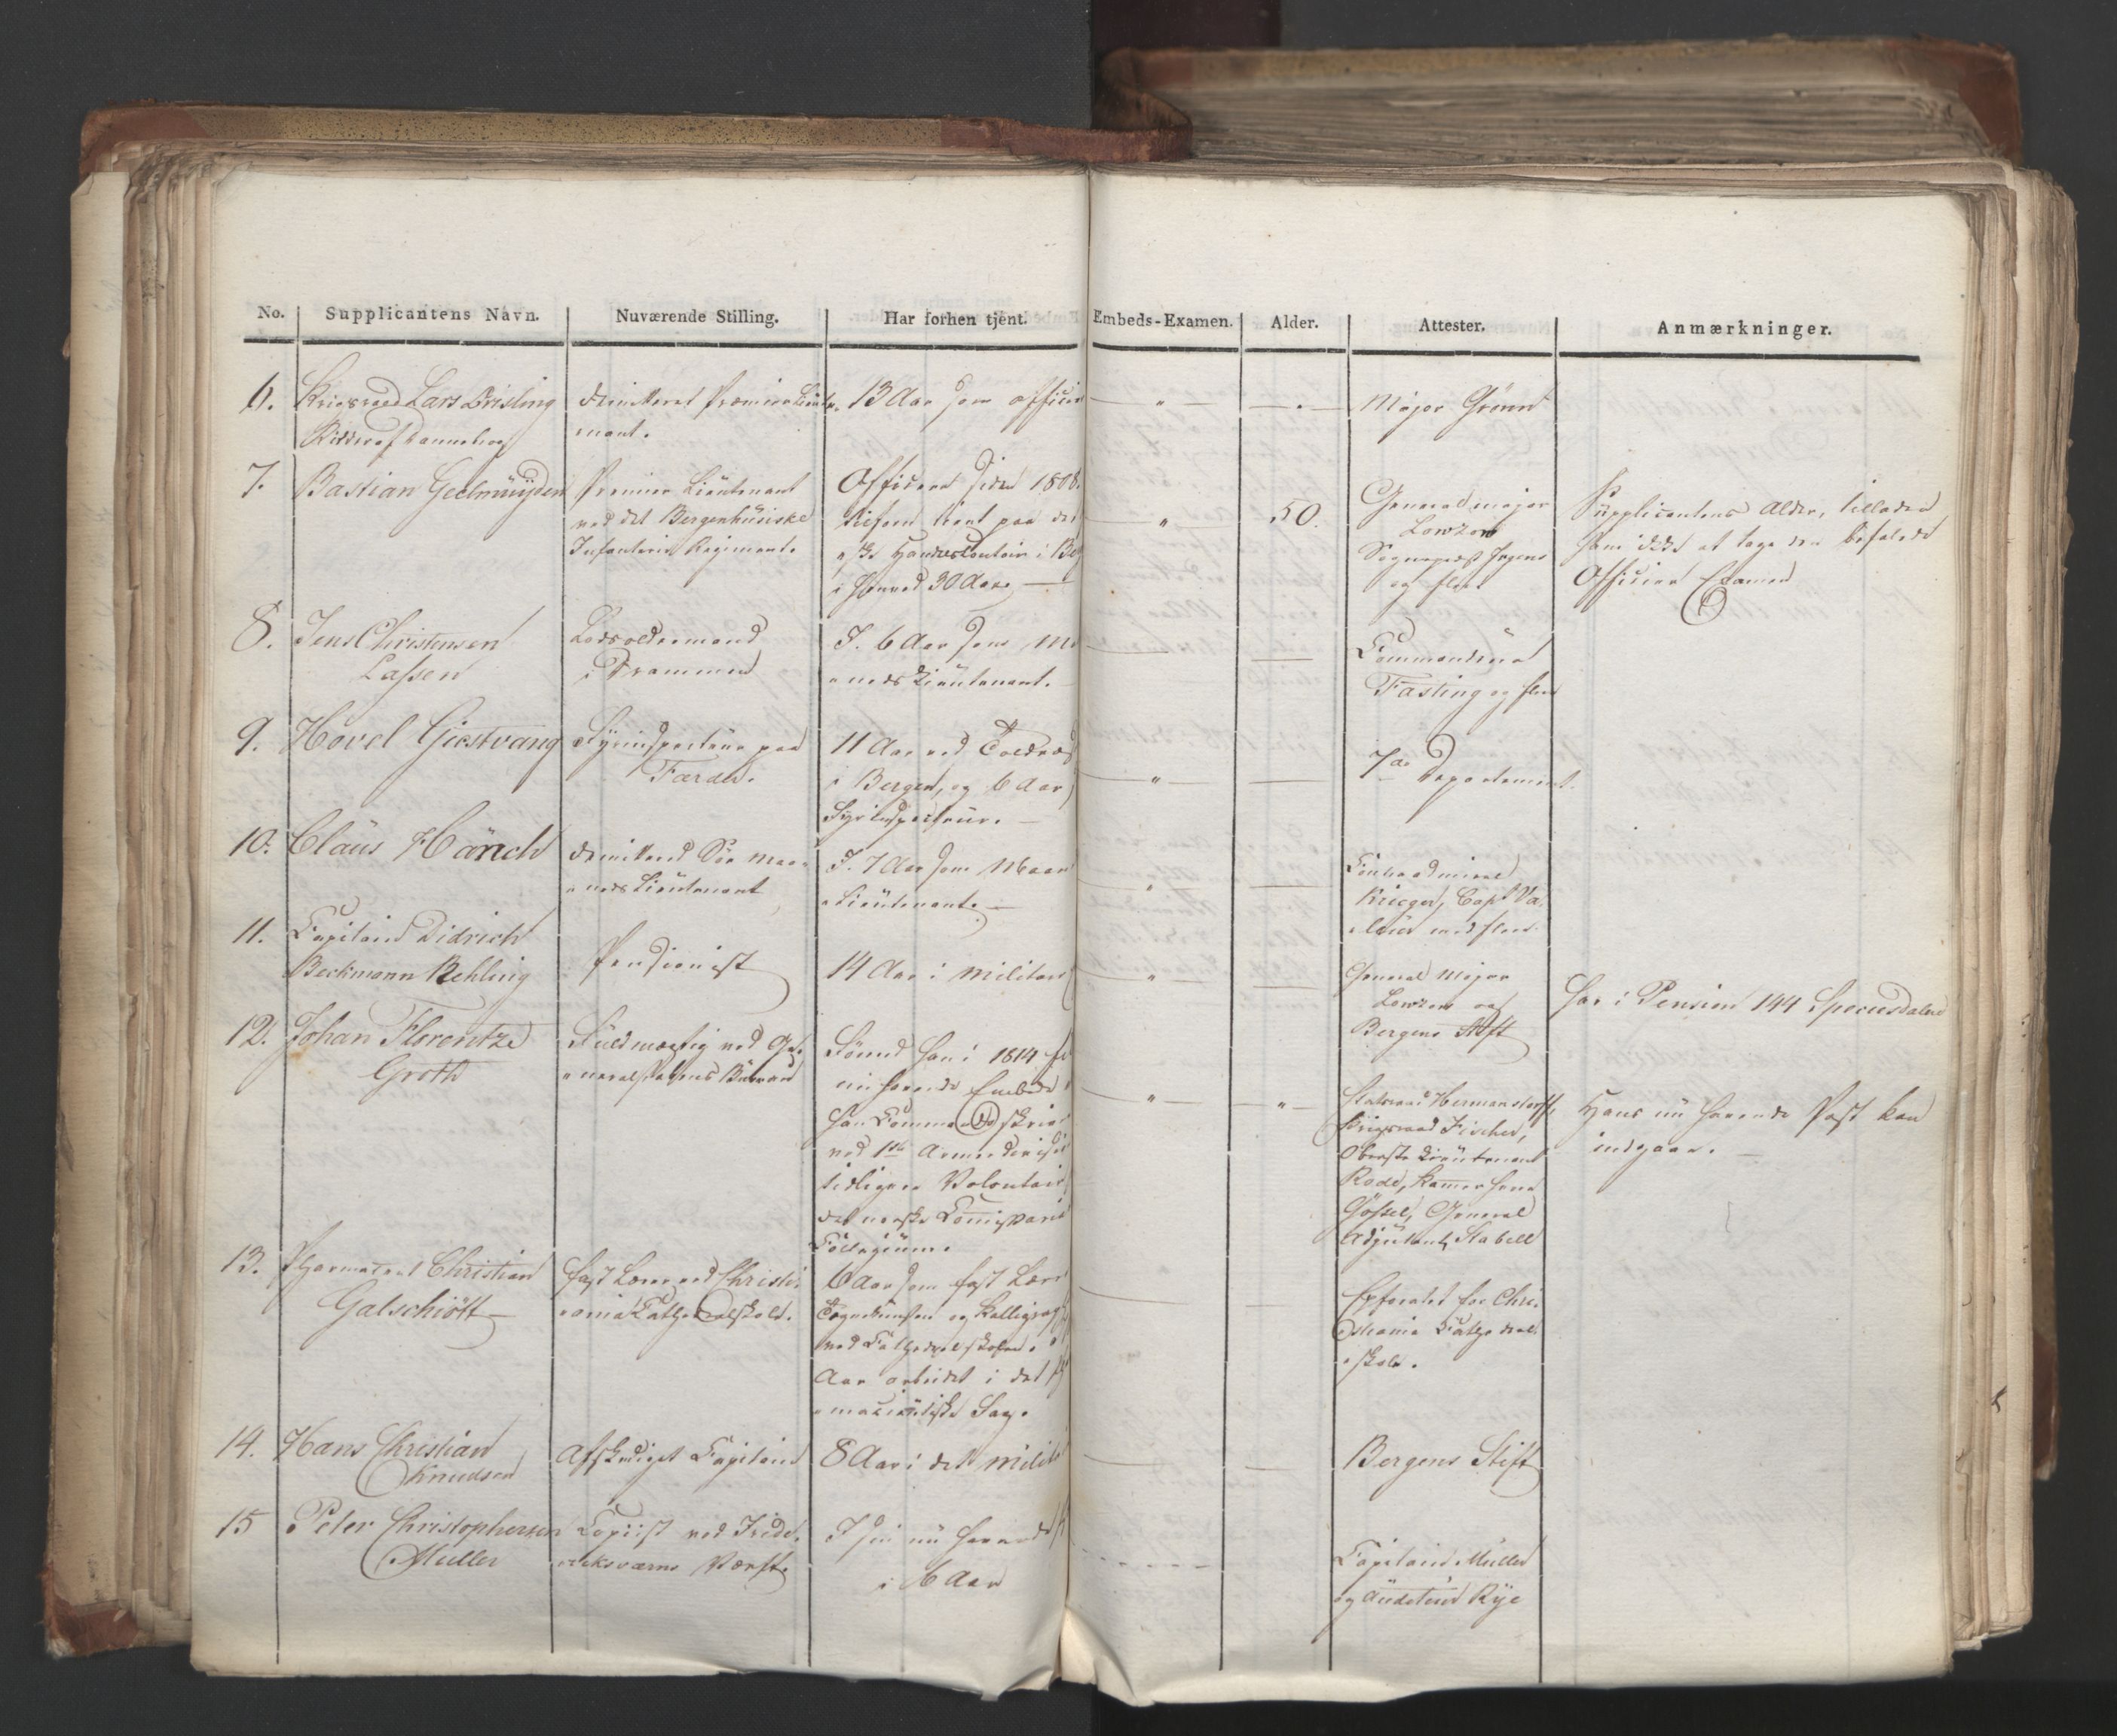 No.
Supplicantens Navn.
Nuværende Stilling.
Har forhen tjent.
Embeds-Examen.
Alder.
Attester.
Anmærkninger.
6.
Krigsraad Lars Brisling
Ridder af Dannebrog
demitteret Premier Lieut-
nant.
13 Aar som Officier
Major Grønn
7.
Bastian Geelmüyden
Premier Lieutenant
ved det Bergenhusiske
Infanterie Regiment.
Officeer siden 1808.
i Henved 30 Aar.
50.
Generalmajor
Lowzow
Sogneprest
og flere
Supplicantens Alder, tillader
ham ikke at tage den befalede
Officier Examen
8.
Jens Christensen
Lassen
Lodsoldermand
i Drammen
I 6 Aar som Ma
neds Lieutenant.
Commandeur
Fasting og flere
9.
Hovel Giestvang
Fyrinspecteur paa
Færder.
11 Aar ved Toldvæs
i Bergen, og 6 Aar
Fyrinspecteur.
7de Departement.
10.
Claus Hanch
demitteret Søe Maa-
neds Lieutenant
I 7 Aar som Maan
Lieutenant.
Contraadmiral
Krieger, Capt Va-
leur med flere
11.
Capitain Didrich
Beckmann Rehling
Pensionist
14 Aar i Militær
General Major
Lowzow og
Bergens Stift
har i Pension 144 Speciesdaler
12.
Johan Florentze
Groth
Fuldmægtig ved Ge-
neralstabens Bureau
Førend han i 1814 fik
nu havende Embede
ved 1ste Armeedivision
tidligere Volontair
det norske Comissariats
Collegium.
Statsraad Hermanstorff,
Krigsraad Fischer,
Oberste Lieutenant
Rode, Kammerherre
Gössel, General
Adjutant Stabell
Hans nu havende Post kan
indgaae.
13.
Pharmaceut Christian
Galschiött
fast Lærer ved Christi-
ania Cathedralskole.
6 Aar som fast Lærer
Tegnekunsten og Kalligraph
ved Cathedralskolen.
Aar arbeidet i det Ph
maceutiske Fag.
Ephoratet for Chri-
stiania Cathedral
skole.
14.
Hans Christian
Knudsen
Afskediget Capitain
8 Aar i det milit
Bergens Stift
15
Peter Christophersen
Muller
Copiist ved Fride-
riksværns Værft.
I sin nu havende
i 6 Aar
Capitain Müller
og Auditeur Rye